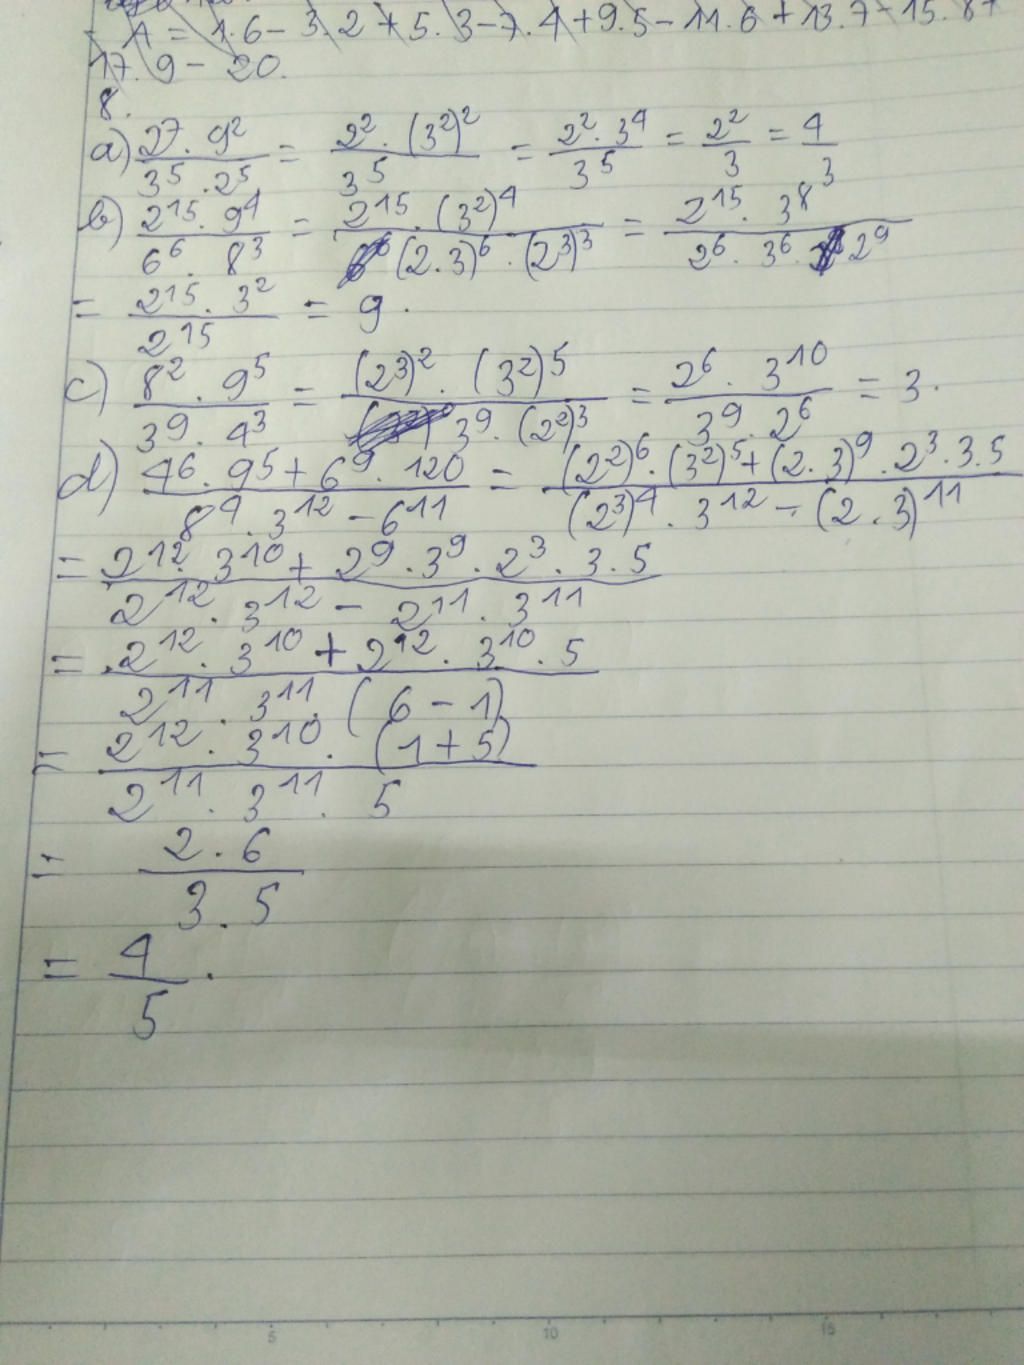 A = 1.6 - 3.2 + 5.3 - 7.4 + 9.5 - 11.6 + 13.7 - 15.8 +
17.9 - 20.
8.
a) 2^7 . 9^2 / 3^5 . 2^5 = 2^2 . (3^2)^2 / 3^5 = 2^2 . 3^4 / 3^5 = 2^2 / 3 = 4 / 3
b) 2^15 . 9^4 / 6^6 . 8^3 = 2^15 . (3^2)^4 / (2.3)^6 . (2^3)^3 = 2^15 . 3^8 / 2^6 . 3^6 . 2^9
= 2^15 . 3^2 / 2^15 = 9 .
c) 8^2 . 9^5 / 3^9 . 4^3 = (2^3)^2 . (3^2)^5 / 3^9 . (2^2)^3 = 2^6 . 3^10 / 3^9 . 2^6 = 3 .
d) 4^6 . 9^5 + 6^9 . 120 / 8^4 . 3^12 - 6^11 = (2^2)^6 . (3^2)^5 + (2.3)^9 . 2^3 . 3 . 5 / (2^3)^4 . 3^12 - (2.3)^11
= 2^12 . 3^10 + 2^9 . 3^9 . 2^3 . 3 . 5 / 2^12 . 3^12 - 2^11 . 3^11
= 2^12 . 3^10 + 2^12 . 3^10 . 5 / 2^11 . 3^11 . (6 - 1)
= 2^12 . 3^10 . (1 + 5) / 2^11 . 3^11 . 5
= 2 . 6 / 3 . 5
= 4 / 5 .
5 10 15